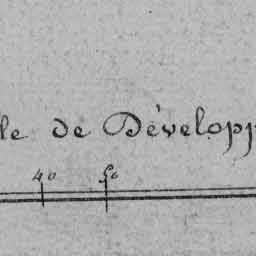 le de Développ
40 50